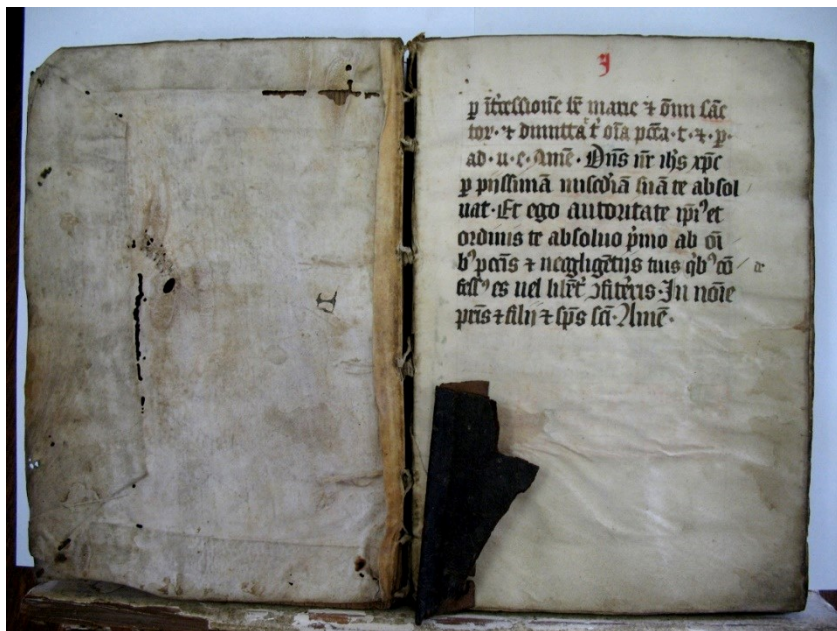 J
ꝑ it̄cessione bē marie ⁊ om̄i sāc
tor · ⁊ dimittat t̄ oīa pcc̄a · t · ⁊ · p ·
ad · u · e · Amē · Dn̄s nr̄ ih̄s xp̄c
ꝑ pnissimā misc̄diā suā te absol
uat · Et ego autoritate ip̄iꝰ et
ordinis te absoluo p̄mo ab oī
bꝰ pcc̄is ⁊ negligētijs tuis qͥbꝰ cō de
fessꝰ es uel lib̄et ↄfiter̄is · In noīe
pr̄is ⁊ filij ⁊ sp̄s sc̄i · Amē ·